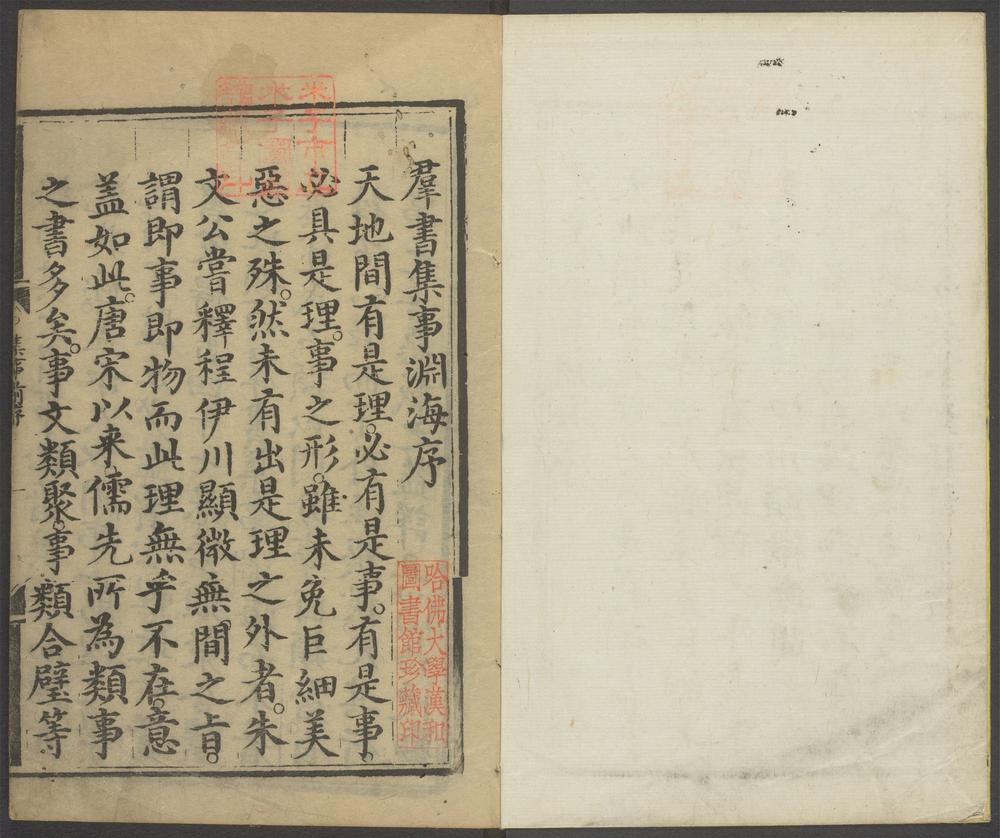 羣書集事淵海序
天地間有是理。必有是事。有是事。
必具是理。事之形。雖未免巨細美
惡之殊。然未有出是理之外者。朱
文公嘗釋程伊川顯微無間之㫖。
謂即事即物而此理無乎不在。意
盖如此。唐宋以来儒先所為類事
之書多矣。事文類聚。事類合璧等
集事前序
哈佛大學漢和
圖書館珍藏印
米子市立
米子圖